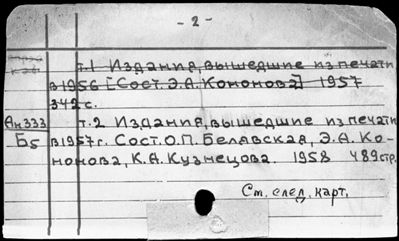 - 2 -
т.1 Издания, вышедшие из печати
в 1956 [Сост. Э.А. Кононова] 1957
342 с.
Ан333 т.2 Издания, вышедшие из печати
Б5 в 1957 г. Сост. О.П. Белявская, Э.А. Ко-
нонова, К.А. Кузнецова. 1958 489 стр.
См. след. карт.